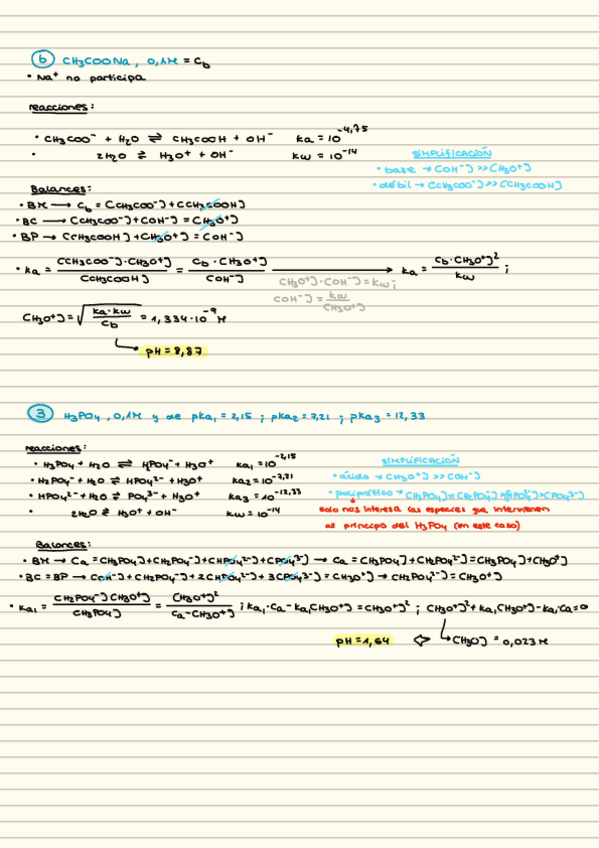 b CH3COONa, 0,1M = Cb
• Na+ no participa
reacciones:
• CH3COO⁻ + H2O ⇌ CH3COOH + OH⁻ Ka = 10^-4,75
• 2H2O ⇌ H3O+ + OH⁻ Kw = 10^-14
SIMPLIFICACIÓN
• base → [OH⁻] >> [H3O+]
• débil → [CH3COO⁻] >> [CH3COOH]
Balances:
• BM → Cb = [CH3COO⁻] + [CH3COOH]
• BC → [CH3COO⁻] + [OH⁻] = [H3O+]
• BP → [CH3COOH] + [H3O+] = [OH⁻]
• Ka = [CH3COO⁻]·[H3O+] / [CH3COOH] = Cb·[H3O+] / [OH⁻] → Ka = Cb·[H3O+]² / Kw ;
[H3O+]·[OH⁻] = Kw ;
[OH⁻] = Kw / [H3O+]
[H3O+] = √(Ka·Kw / Cb) = 1,334·10^-9 M
pH = 8,87
3 H3PO4, 0,1M y de pKa1 = 2,15 ; pKa2 = 7,21 ; pKa3 = 12,33
reacciones:
• H3PO4 + H2O ⇌ H2PO4⁻ + H3O+ Ka1 = 10^-2,15
• H2PO4⁻ + H2O ⇌ HPO4²⁻ + H3O+ Ka2 = 10^-7,21
• HPO4²⁻ + H2O ⇌ PO4³⁻ + H3O+ Ka3 = 10^-12,33
• 2H2O ⇌ H3O+ + OH⁻ Kw = 10^-14
SIMPLIFICACIÓN
• ácido → [H3O+] >> [OH⁻]
solo nos interesa las especies que intervienen
al principo del H3PO4 (en este caso)
Balances:
• BM → Ca = [H3PO4] + [H2PO4⁻] + [HPO4²⁻] + [PO4³⁻] → Ca = [H3PO4] + [H2PO4²⁻] = [H3PO4] + [H3O+]
• BC = BP → [OH⁻] + [H2PO4⁻] + 2[HPO4²⁻] + 3[PO4³⁻] = [H3O+] → [H2PO4²⁻] = [H3O+]
• Ka1 = [H2PO4⁻][H3O+] / [H3PO4] = [H3O+]² / Ca-[H3O+] ; Ka1·Ca - Ka1[H3O+] = [H3O+]² ; [H3O+]² + Ka1[H3O+] - Ka1·Ca = 0
pH = 1,64 ⇐ [H3O] = 0,023 M